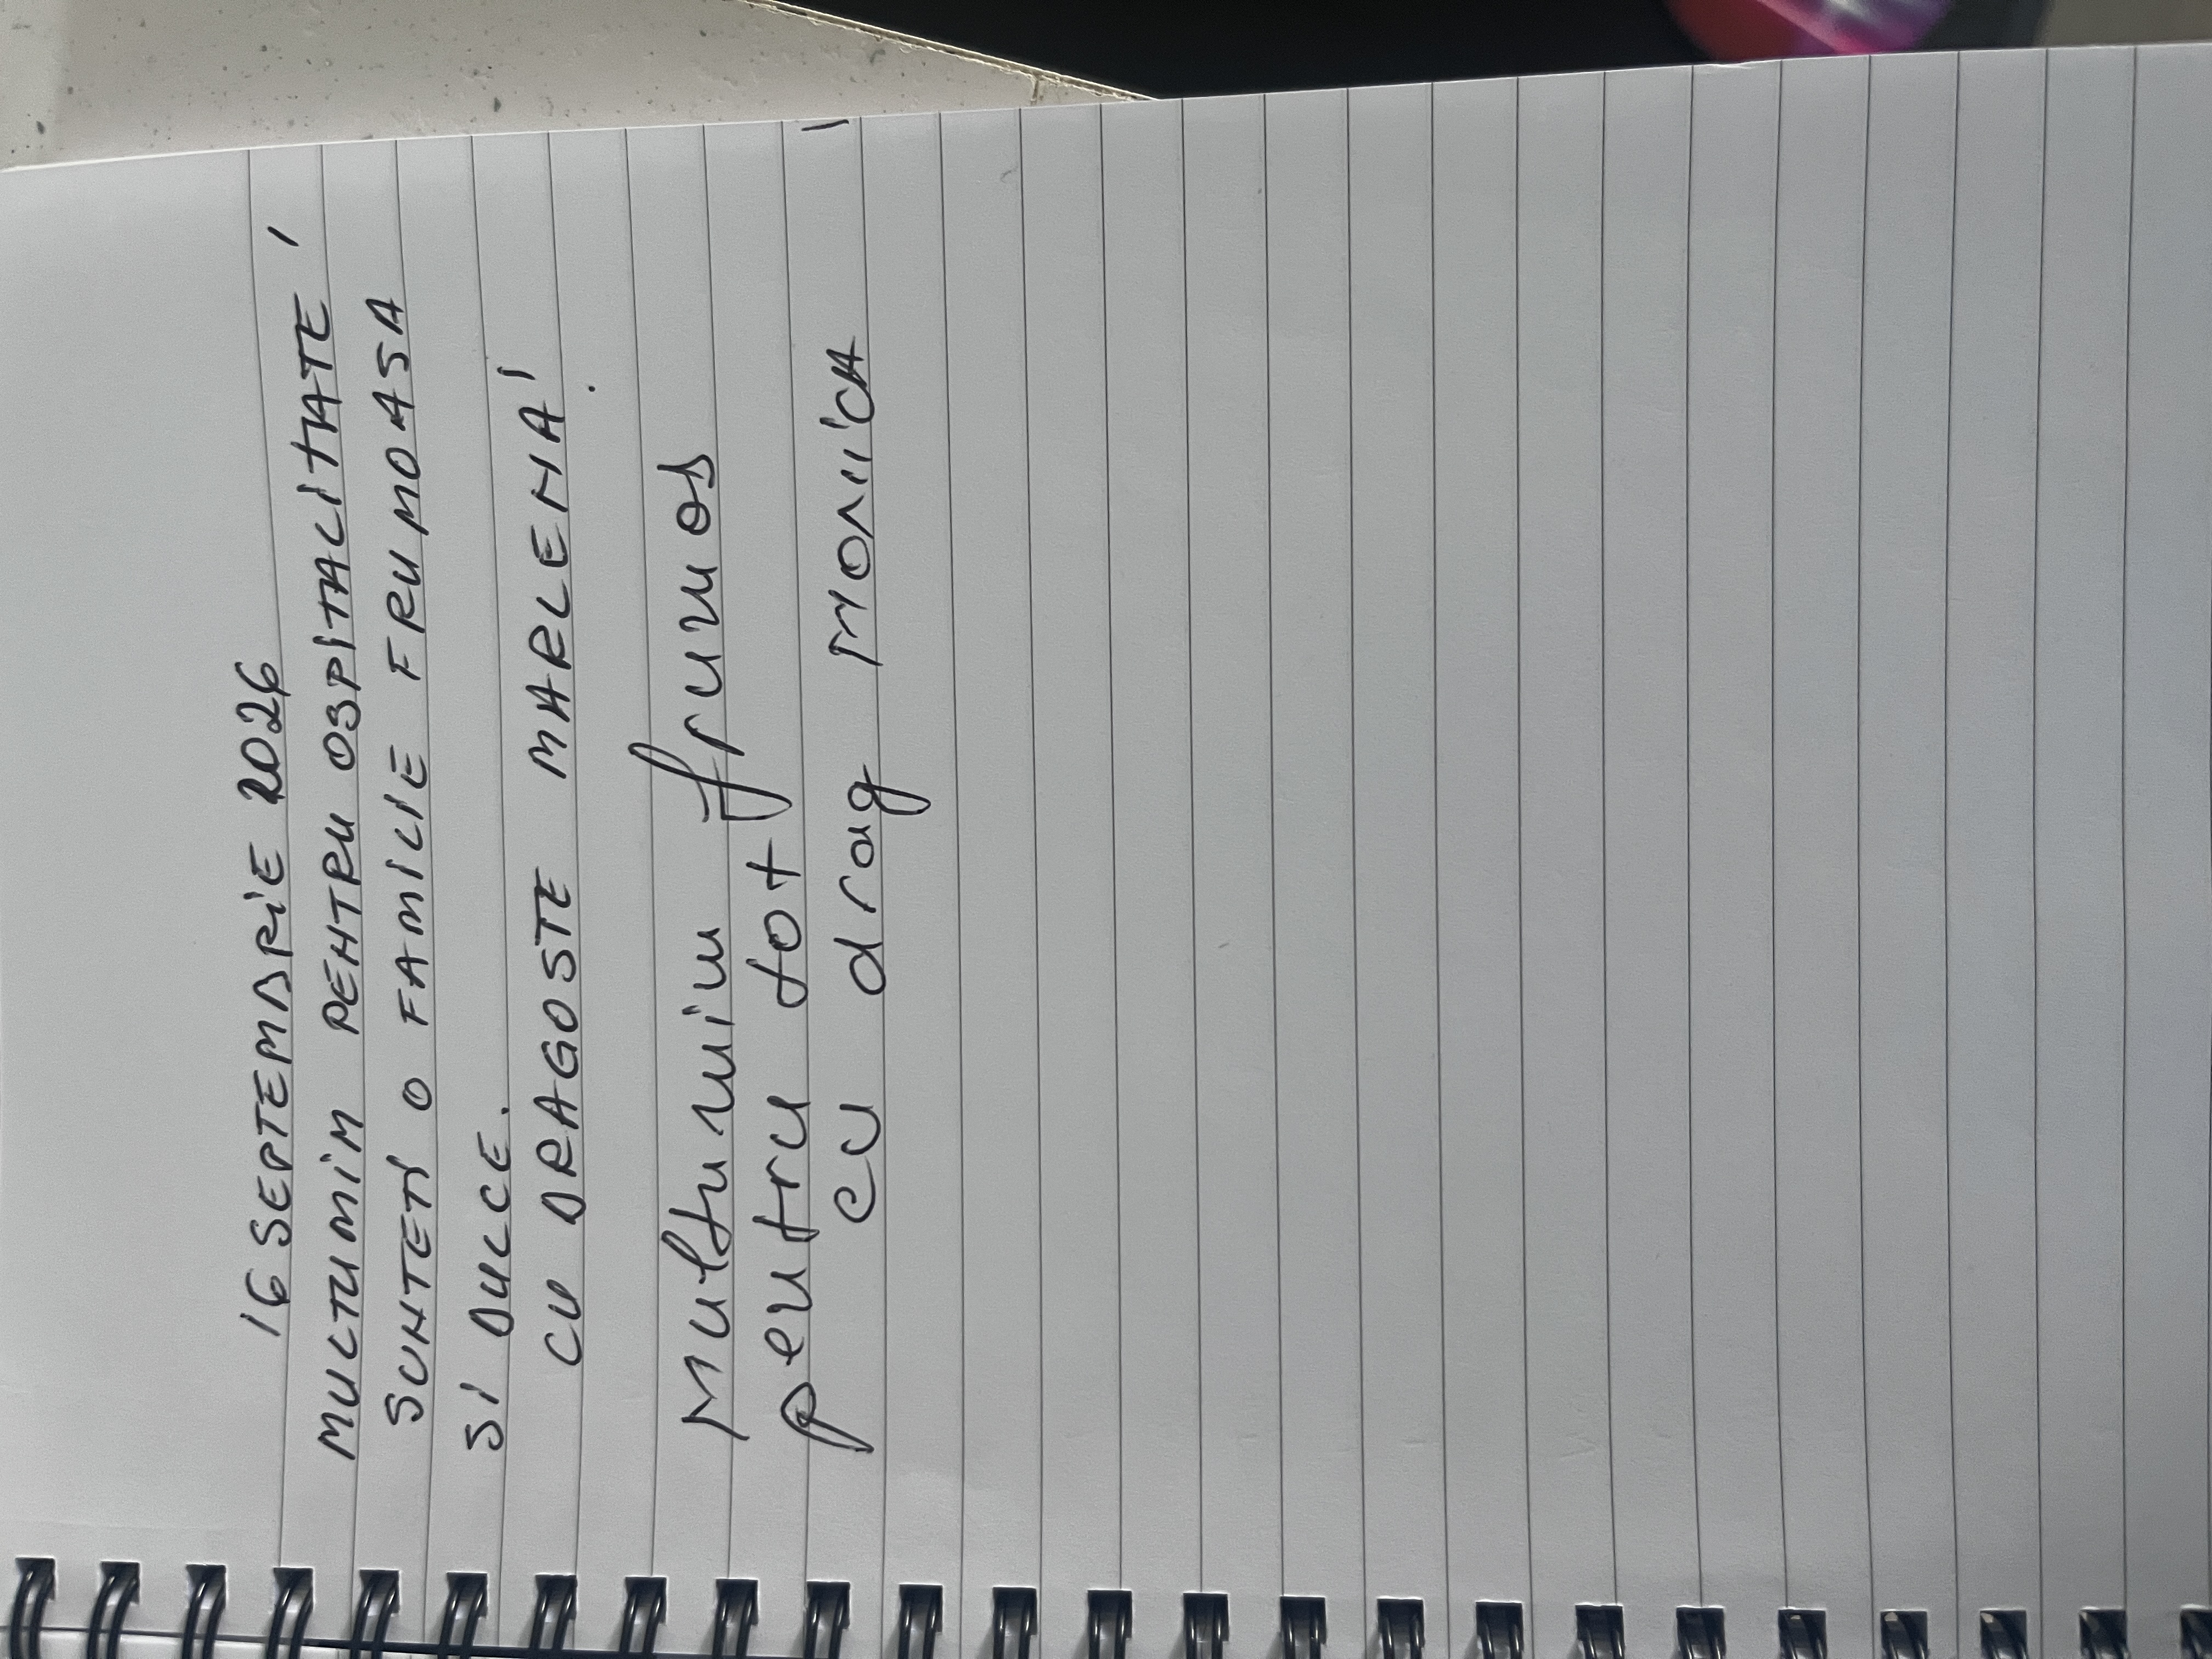 16 SEPTEMBRIE 2026
MULTUMIM PENTRU OSPITALITATE!
SUNTETI O FAMILIE FRUMOASA
SI DULCE.
CU DRAGOSTE MARLENA!
Multumim frumos
pentru tot
cu drag MONICA